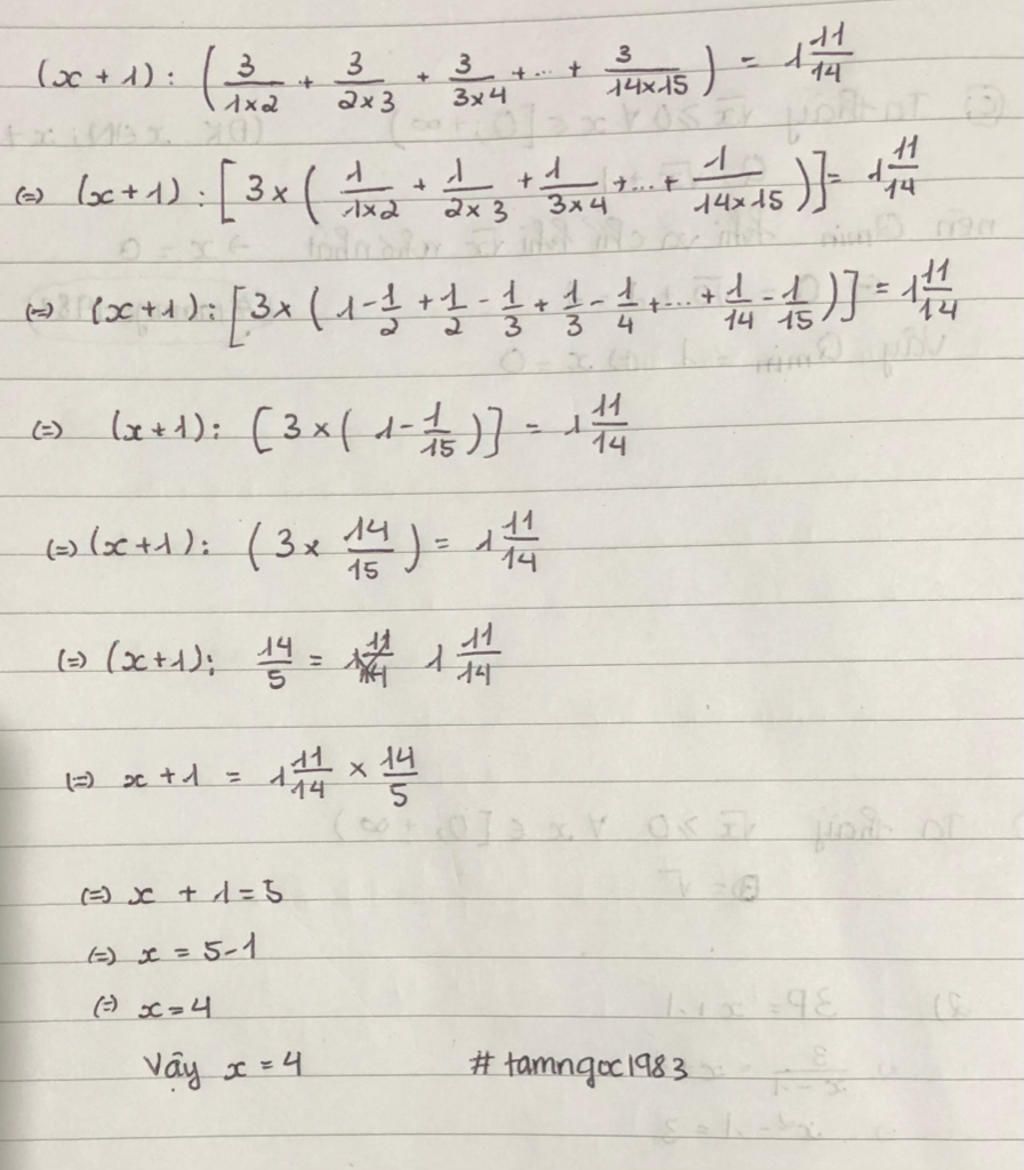 (x + 1) : ( 3/1×2 + 3/2×3 + 3/3×4 + ... + 3/14×15 ) = 1 11/14
(=) (x + 1) : [ 3 × ( 1/1×2 + 1/2×3 + 1/3×4 + ... + 1/14×15 ) ] = 1 11/14
(=) (x + 1) : [ 3 × ( 1 - 1/2 + 1/2 - 1/3 + 1/3 - 1/4 + ... + 1/14 - 1/15 ) ] = 1 11/14
(=) (x + 1) : [ 3 × ( 1 - 1/15 ) ] = 1 11/14
(=) (x + 1) : ( 3 × 14/15 ) = 1 11/14
(=) (x + 1) : 14/5 = 1 11/14
(=) x + 1 = 1 11/14 × 14/5
(=) x + 1 = 5
(=) x = 5 - 1
(=) x = 4
Vậy x = 4 # tamngoc1983